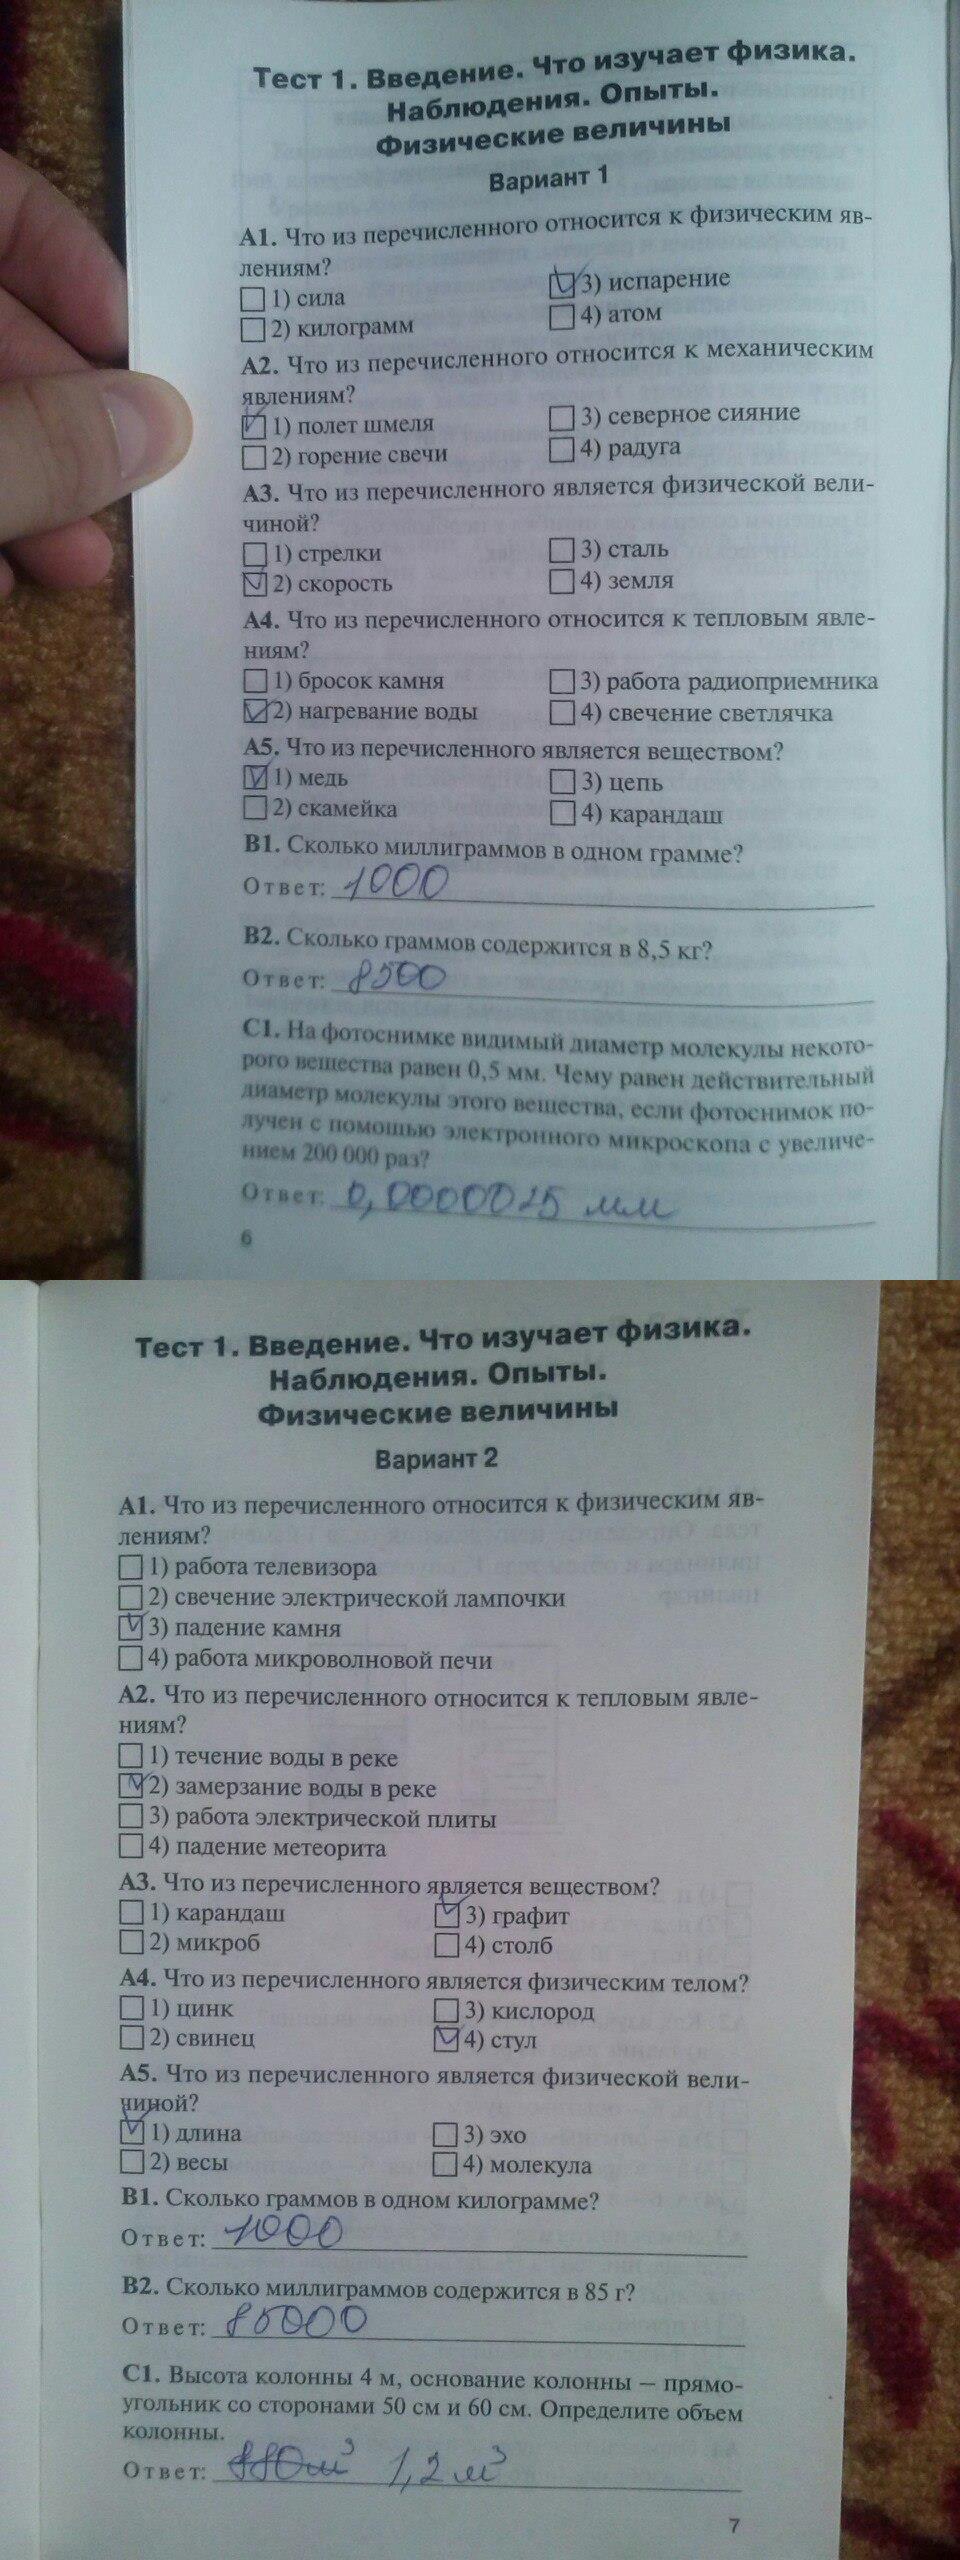 Тест 1. Введение. Что изучает физика.
Наблюдения. Опыты.
Физические величины
Вариант 1
А1. Что из перечисленного относится к физическим яв-
лениям?
1) сила
3) испарение
2) килограмм
4) атом
А2. Что из перечисленного относится к механическим
явлениям?
1) полет шмеля
3) северное сияние
2) горение свечи
4) радуга
А3. Что из перечисленного является физической вели-
чиной?
1) стрелки
3) сталь
2) скорость
4) земля
А4. Что из перечисленного относится к тепловым явле-
ниям?
1) бросок камня
3) работа радиоприемника
2) нагревание воды
4) свечение светлячка
А5. Что из перечисленного является веществом?
1) медь
3) цепь
2) скамейка
4) карандаш
В1. Сколько миллиграммов в одном грамме?
Ответ: 1000
В2. Сколько граммов содержится в 8,5 кг?
Ответ: 8500
С1. На фотоснимке видимый диаметр молекулы некото-
рого вещества равен 0,5 мм. Чему равен действительный
диаметр молекулы этого вещества, если фотоснимок по-
лучен с помощью электронного микроскопа с увеличе-
нием 200 000 раз?
Ответ: 0,0000025 мм
6
Тест 1. Введение. Что изучает физика.
Наблюдения. Опыты.
Физические величины
Вариант 2
А1. Что из перечисленного относится к физическим яв-
лениям?
1) работа телевизора
2) свечение электрической лампочки
3) падение камня
4) работа микроволновой печи
А2. Что из перечисленного относится к тепловым явле-
ниям?
1) течение воды в реке
2) замерзание воды в реке
3) работа электрической плиты
4) падение метеорита
А3. Что из перечисленного является веществом?
1) карандаш
3) графит
2) микроб
4) столб
А4. Что из перечисленного является физическим телом?
1) цинк
3) кислород
2) свинец
4) стул
А5. Что из перечисленного является физической вели-
чиной?
1) длина
3) эхо
2) весы
4) молекула
В1. Сколько граммов в одном килограмме?
Ответ: 1000
В2. Сколько миллиграммов содержится в 85 г?
Ответ: 85000
С1. Высота колонны 4 м, основание колонны — прямо-
угольник со сторонами 50 см и 60 см. Определите объем
колонны.
Ответ: 880м³ 1,2 м³
7